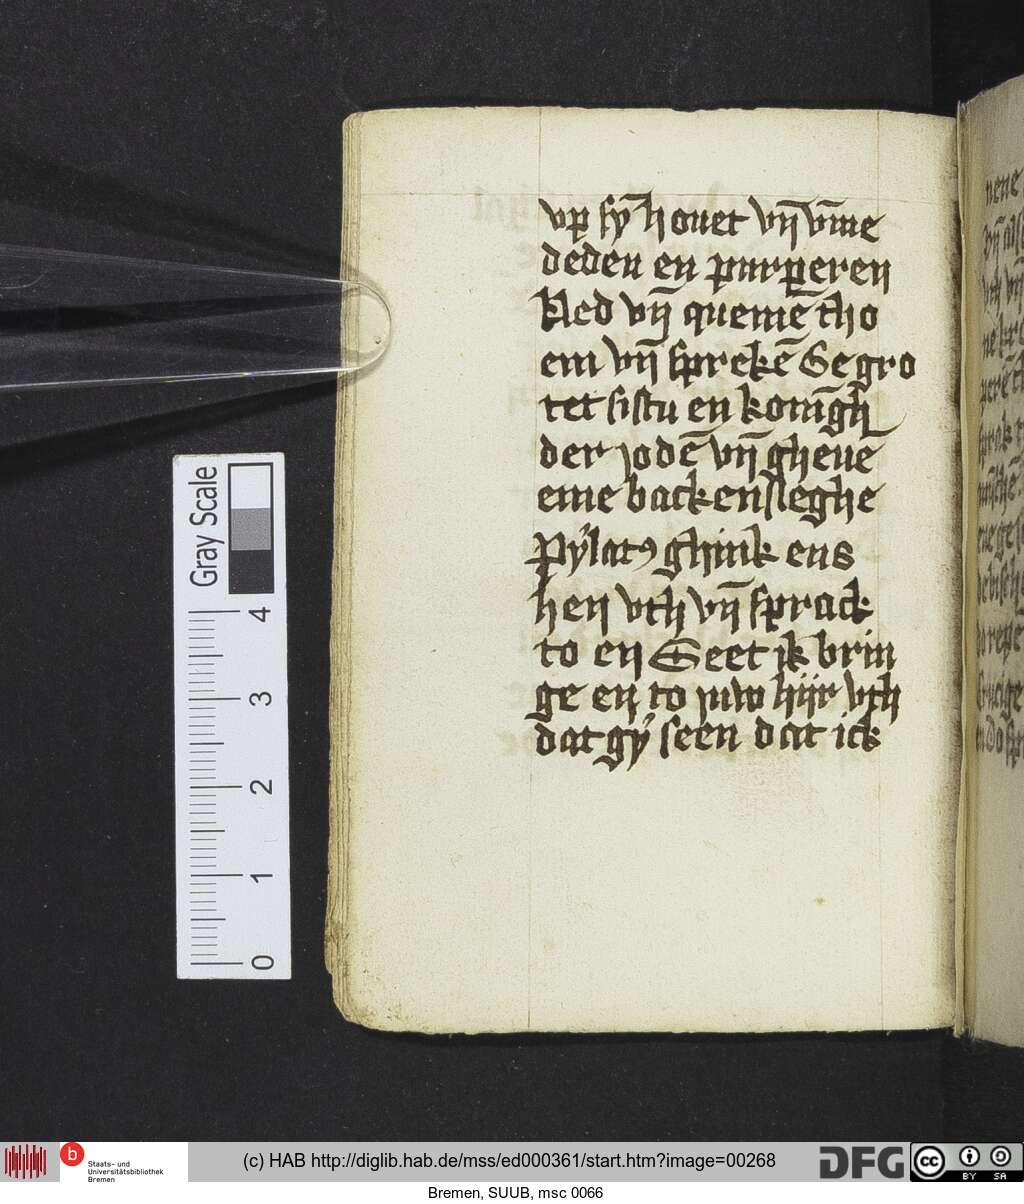 vp sy̅ houet vn̅ v̅me
deden en purperen
kled vn̅ queme̅ tho
em vn̅ spreke̅ Gegro
tet sistu en konigh̅
der jode̅ vn̅ gheue̅
eme backensleghe
Pylatꝰ ghink ens
hen vth vn̅ sprack
to en Seet ik brin
ge en to juw hijr vth
dat gy seen dat ick
Gray Scale
4
3
2
1
0
b Staats- und
Universitätsbibliothek
Bremen
(c) HAB http://diglib.hab.de/mss/ed000361/start.htm?image=00268
DFG
cc BY SA
Bremen, SUUB, msc 0066